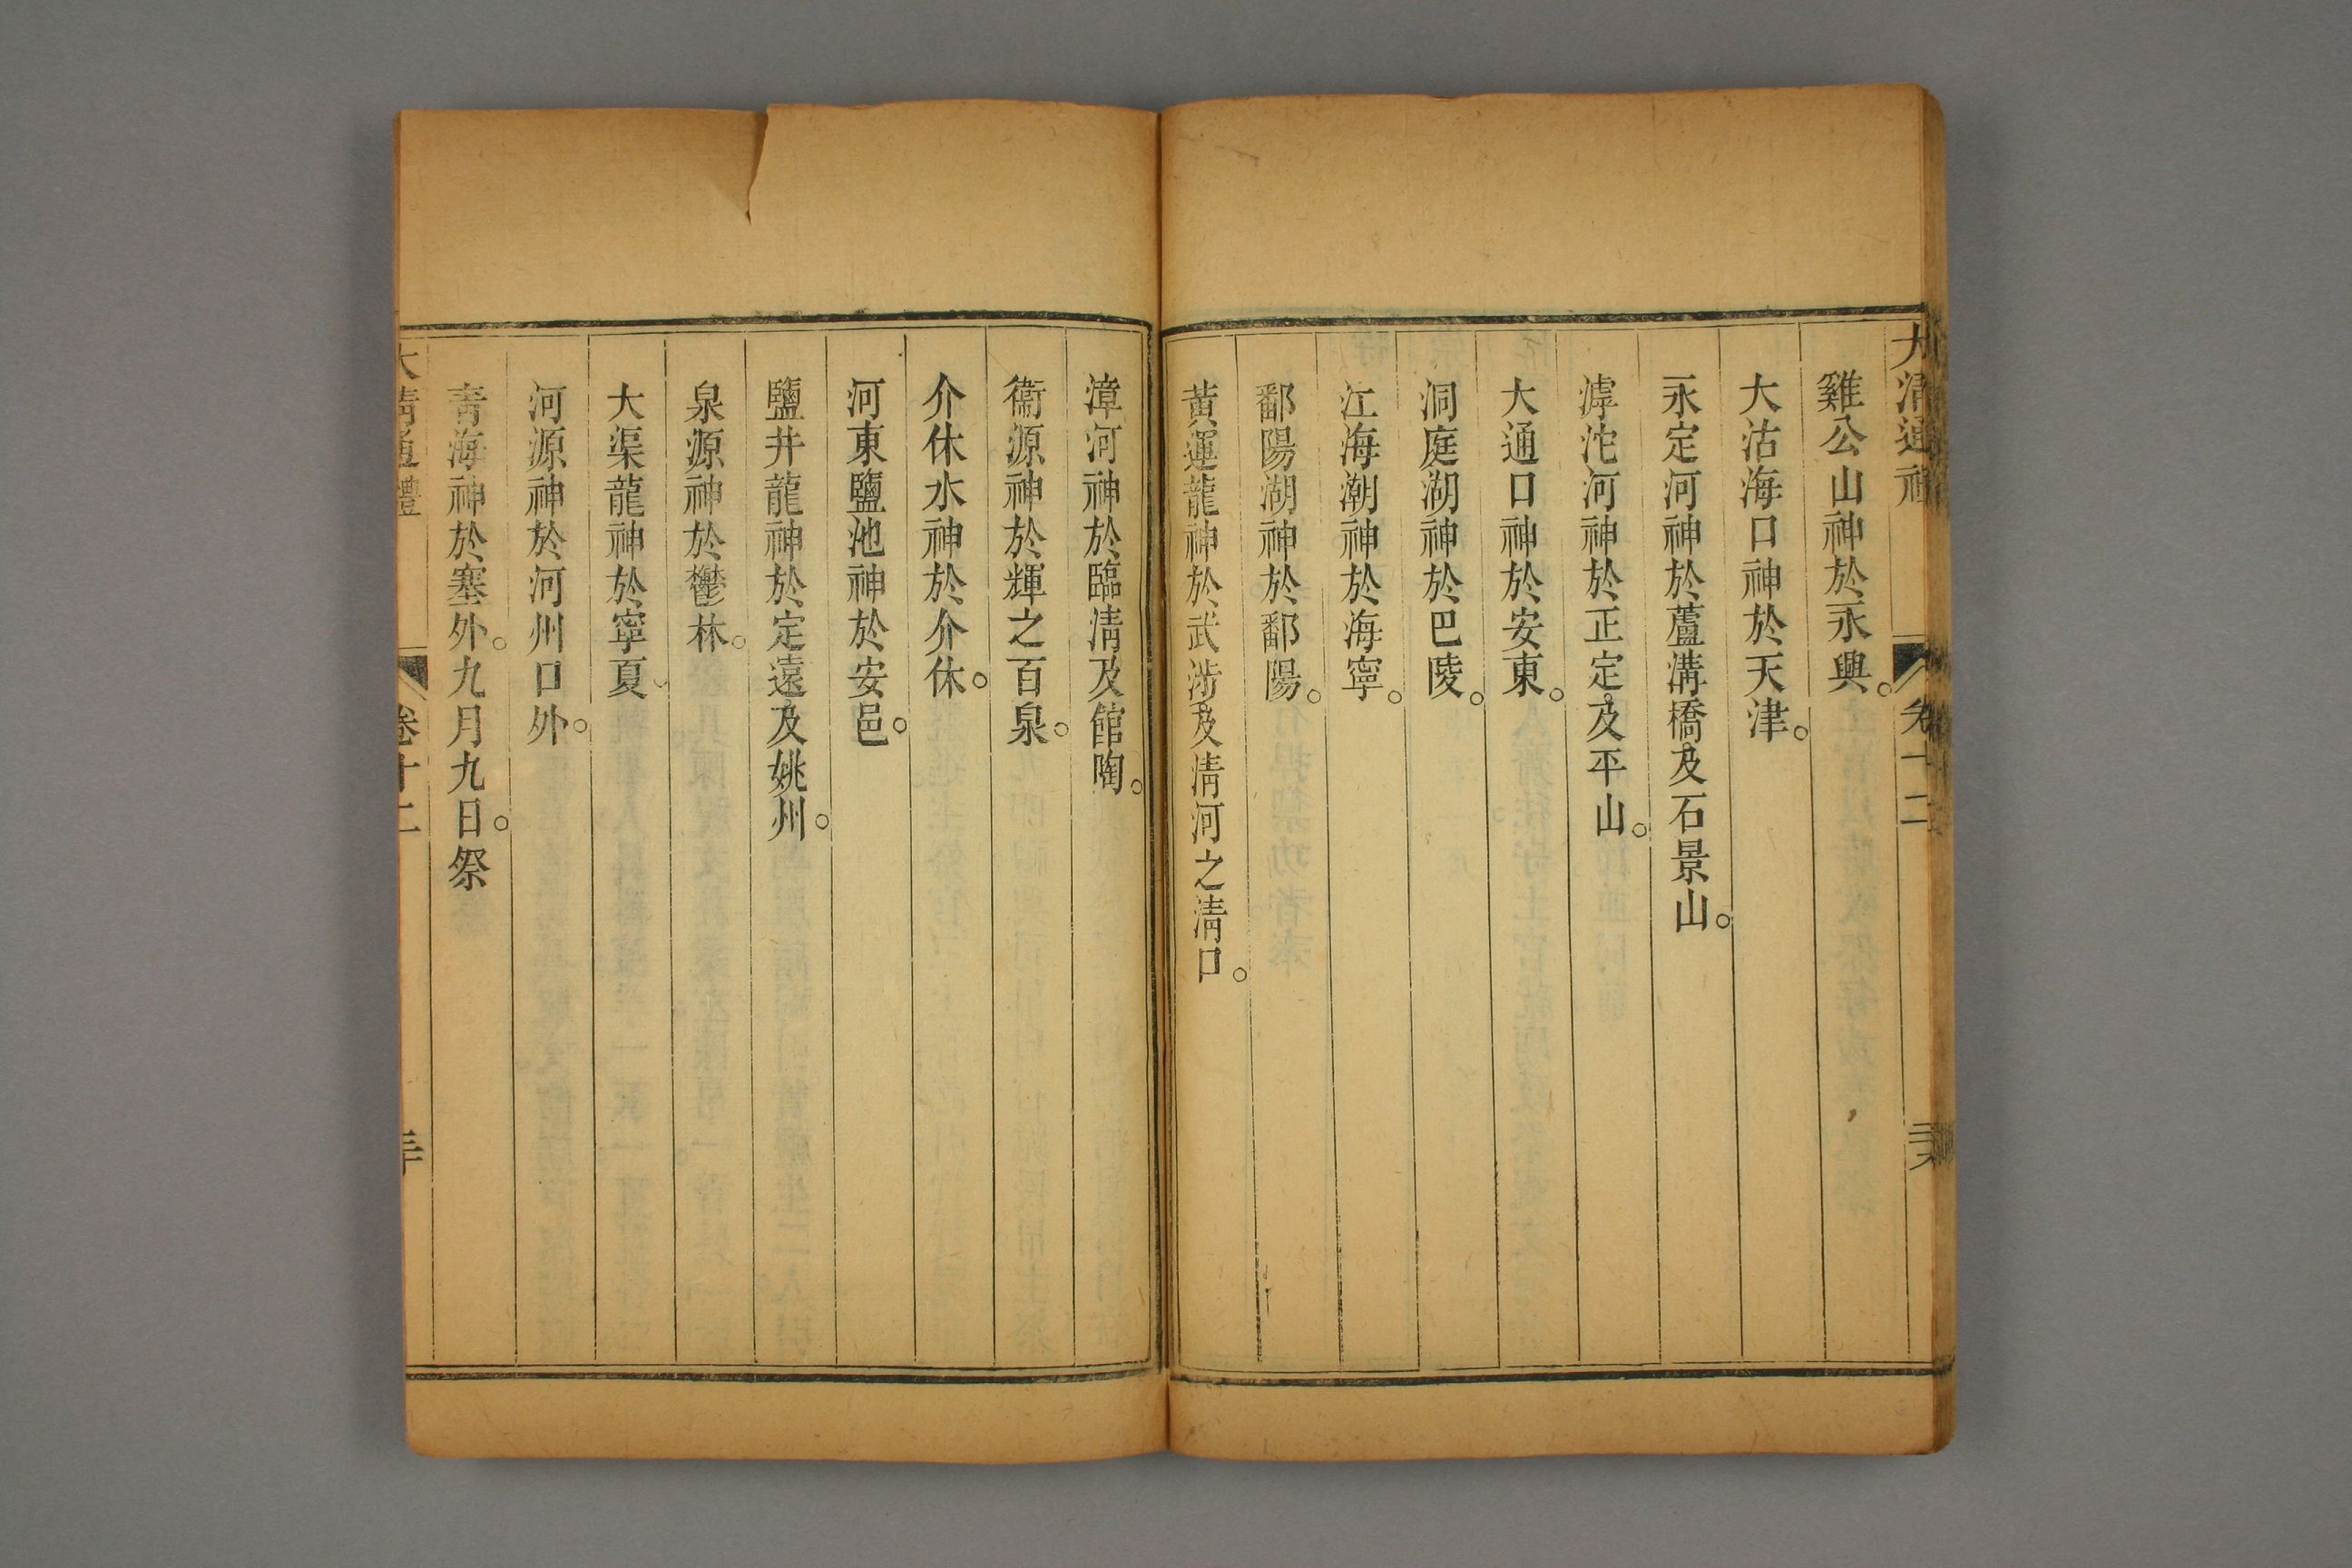 大清通禮
卷十二
雞公山神於永興。
大沽海口神於天津。
永定河神於蘆溝橋及石景山。
滹沱河神於正定及平山。
大通口神於安東。
洞庭湖神於巴陵。
江海潮神於海寧。
鄱陽湖神於鄱陽。
黃運龍神於武涉及清河之清口。
漳河神於臨清及館陶。
衞源神於輝之百泉。
介休水神於介休。
河東鹽池神於安邑。
鹽井龍神於定遠及姚州。
泉源神於鬱林。
大渠龍神於寧夏
河源神於河州口外。
青海神於塞外。九月九日。祭
大清通禮
卷十二